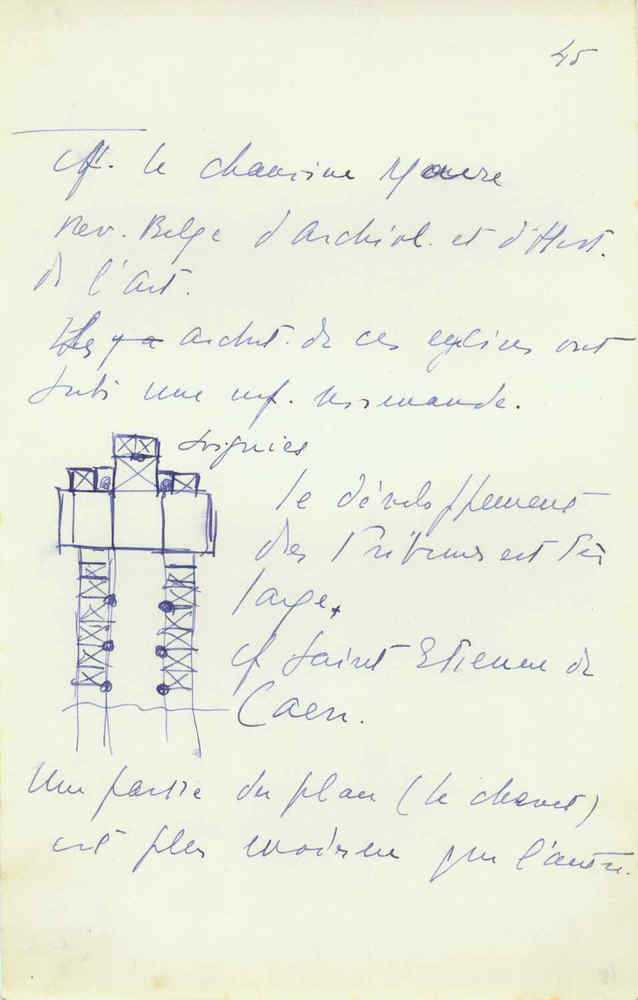 45
cf. le chanoine
Rev. Belge d'Archéol. et d'Hist.
de l'Art.
archit. de ces eglises ont
subi une inf. normande.
Soignies
le développement
des Tribunes est très
large,
cf Saint Etienne de
Caen.
Une partie du plan (le chevet)
est plus moderne que l'autre.